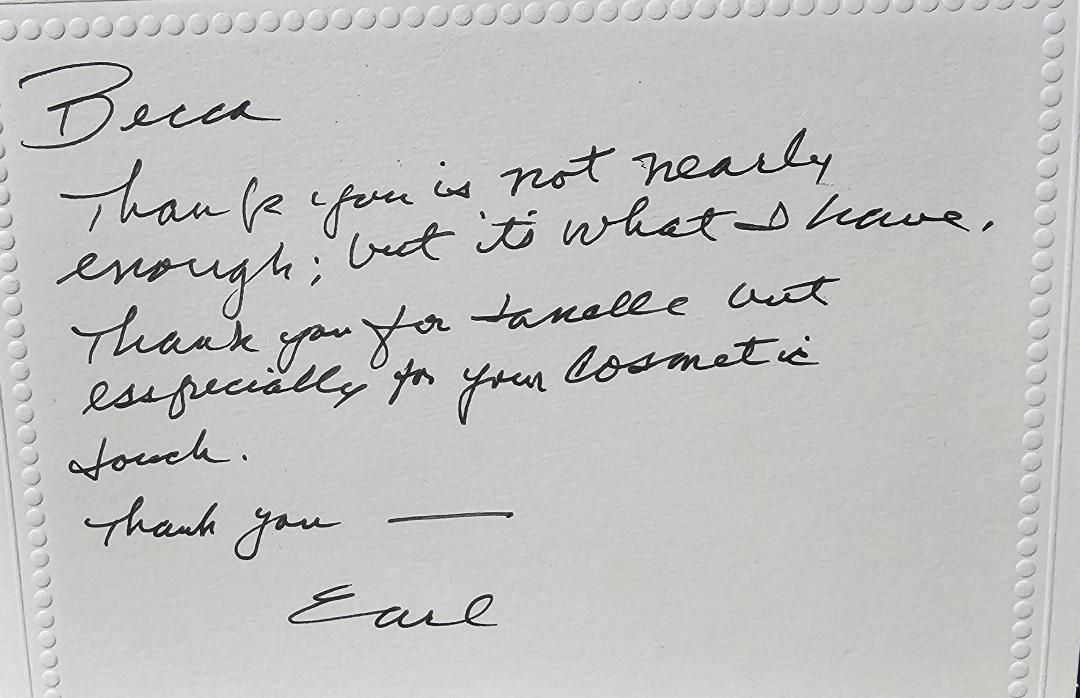 Becca
Thank you is not nearly
enough; but it's what I have.
Thank you for but
esspecially for your cosmetic
touch.
Thank you —
Earl